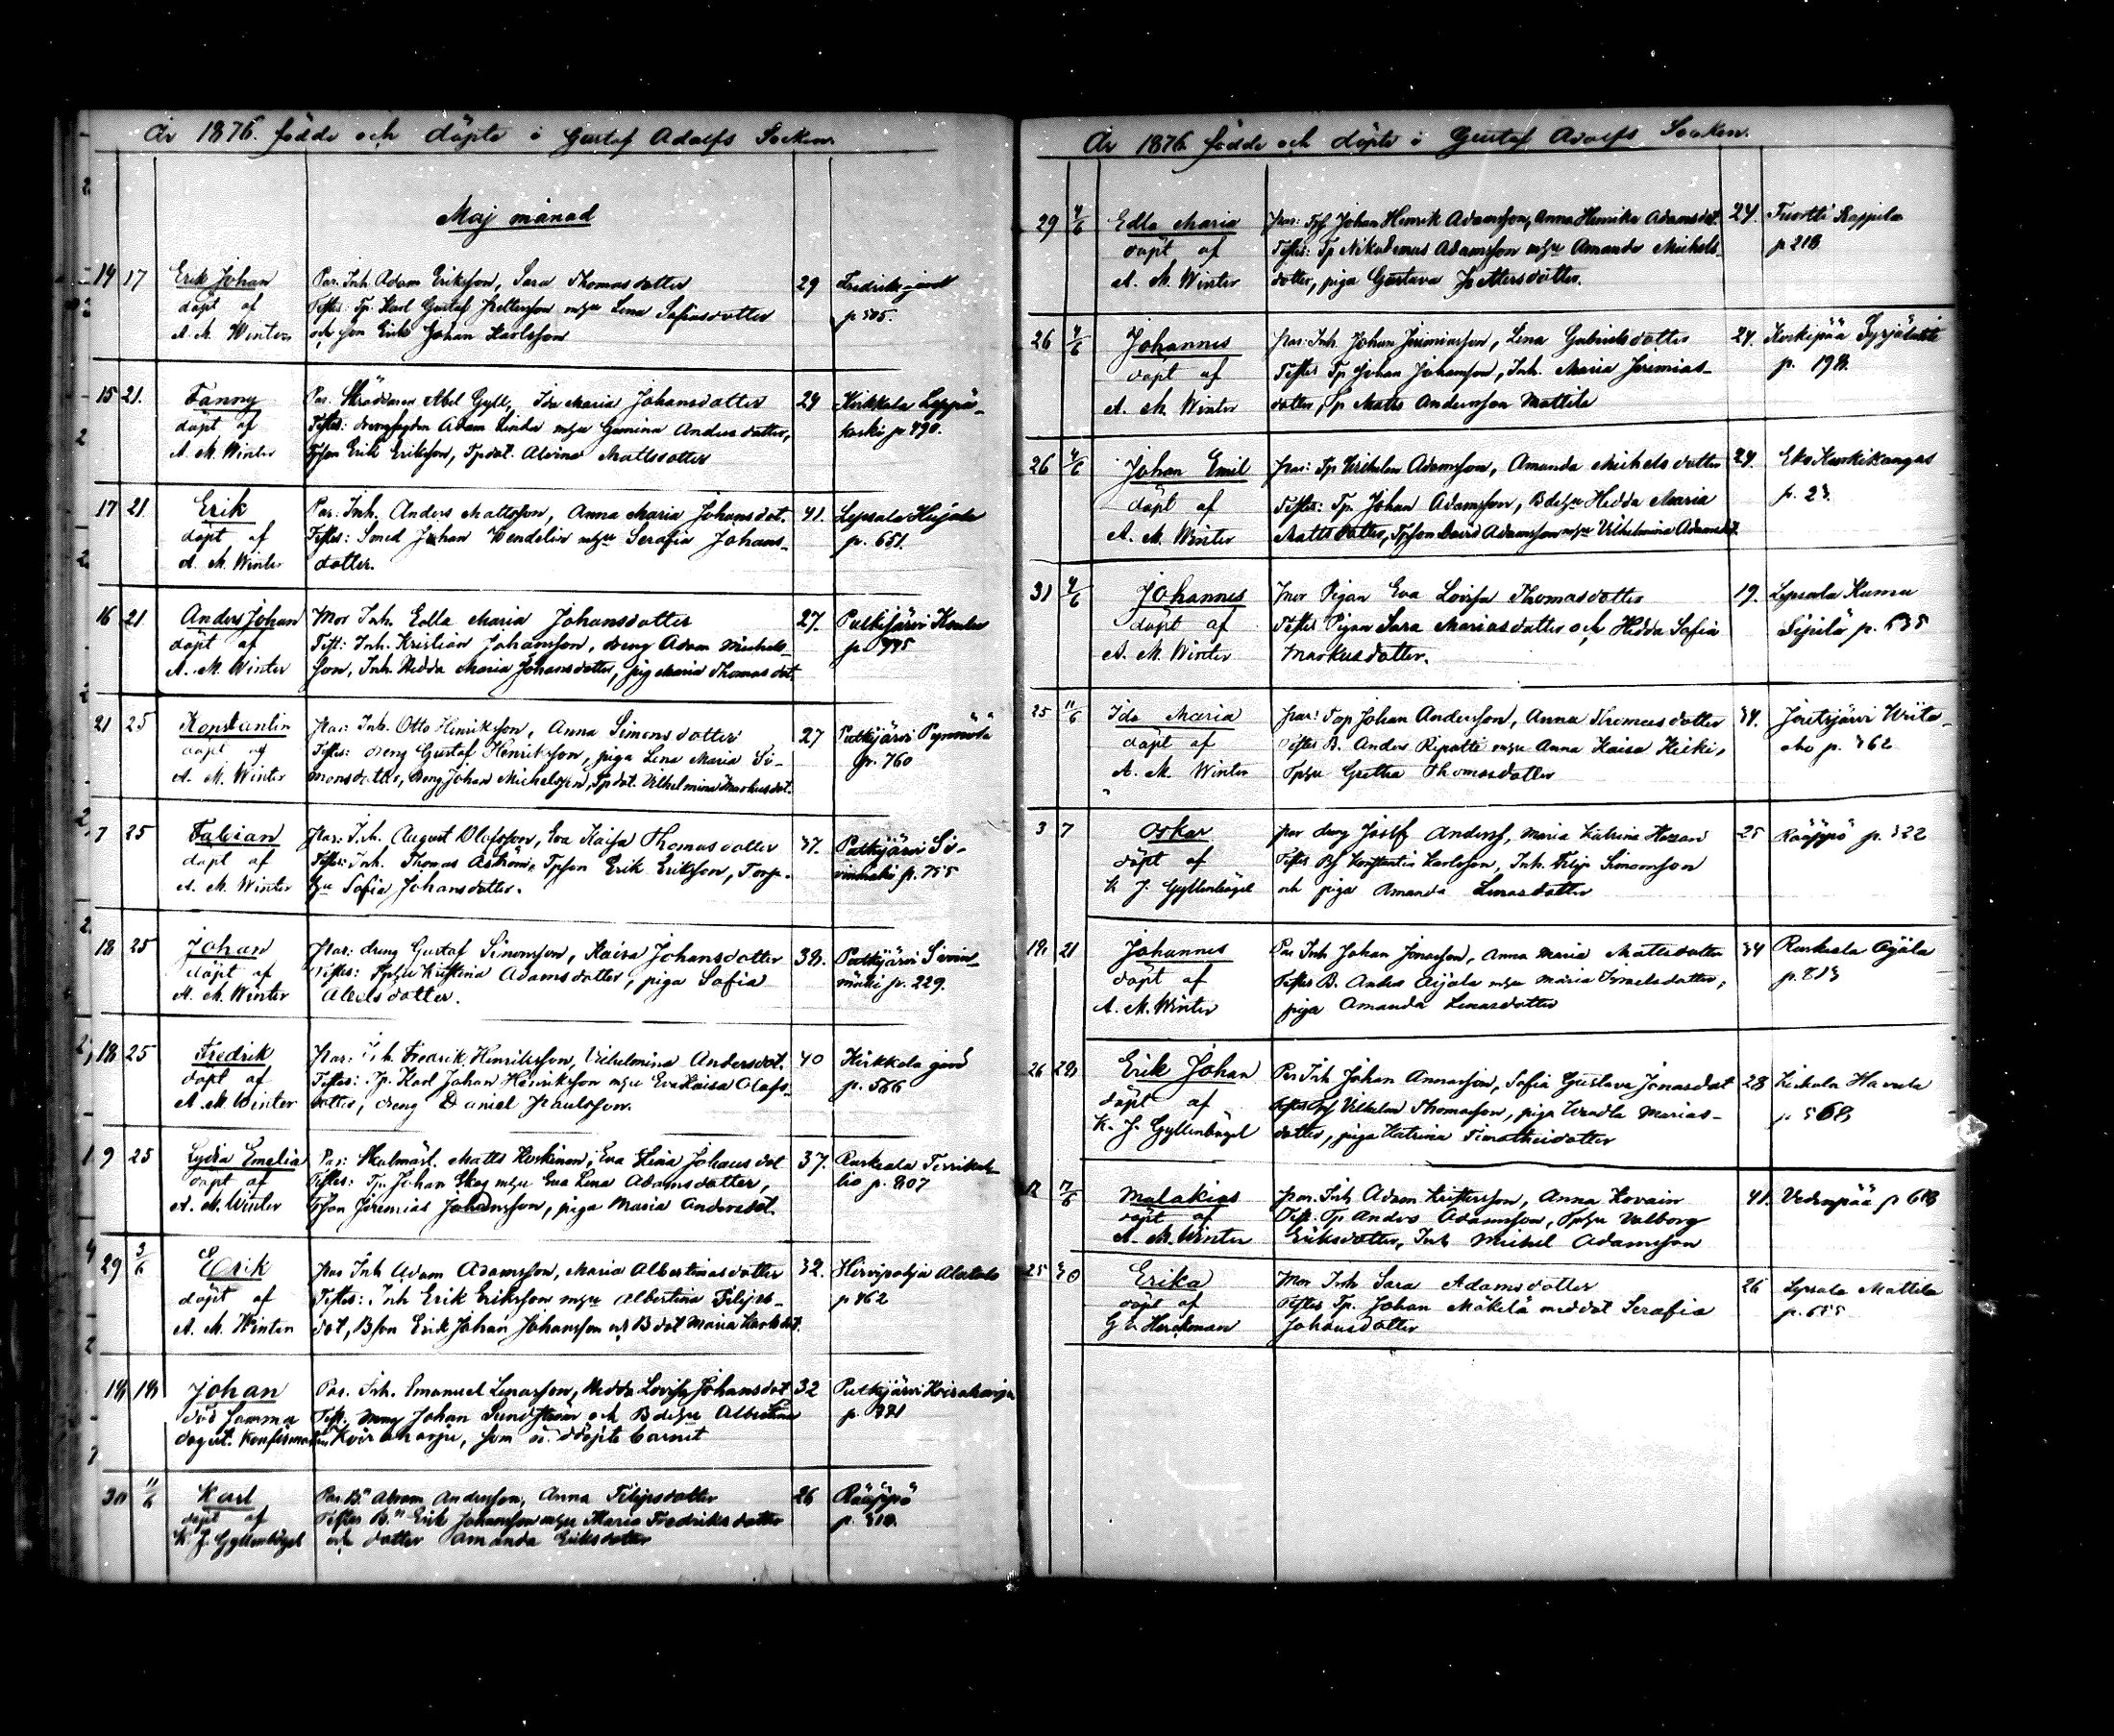 År 1876. födde och döpte i Gustaf Adolfs Socken.
Maj månad
14 17 Erik Johan Par. Inh. Adam Eriksson, Sara Thomasdotter 29 Fredriks gård
döpt af Testes: Tp. Karl Gustaf Pettersson m hu Lena Sofiasdotter p 505.
A. M. Winter och son Erik Johan Karlsson
15 21. Fanny Par. Skräddaren Abel Gyll, Ida Maria Johansdotter 29 Kirkkala Leppä-
döpt af Testes: Adam Linda m hu Gamina Andersdotter, koski p 490.
A. M. Winter Tpson Erik Eriksson, Tpdot. Alvina Mattsdotter
17 21. Erik Par: Inh. Anders Mattsson, Anna Maria Johansdot. 41. Lepsala Hujala
döpt af Testes: Smed Johan Wendelin m hu Serafia Johans- p. 651.
A. M. Winter dotter.
16 21 Anders Johan Mor Inh. Edla Maria Johansdotter 27. Putkijärvi
döpt af Test: Inh. Kristian Johansson, dreng Adam Michels- p. 775
A. M. Winter son, Inh. Hedda Maria Johansdotter, pig Maria Thomasdot.
21 25 Konstantin Par: Inh. Otto Henriksson, Anna Simonsdotter 27 Putkijärvi
döpt af Testes: dreng Gustaf Henriksson, piga Lena Maria Si- p. 760
A. M. Winter monsdotter, dreng Johan Michelsson, Tpdot. Vilhelmina Markusdot.
7 25 Fabian Par: Inh. August Olofsson, Eva Kaisa Thomasdotter 37. Putkijärvi Si-
döpt af Testes: Inh. Thomas Åström, Tpson Erik Eriksson, Torp- vinmäki p. 755
A. M. Winter hu Sofia Johansdotter.
18 25 Johan Par: dreng Gustaf Simonsson, Kaisa Johansdotter 38. Putkijärvi Sivin-
döpt af Testes: Tphu Kristina Adamsdotter, piga Sofia mäki p. 229.
A. M. Winter Abelsdotter.
18 25 Fredrik Par: Inh. Fredrik Henriksson, Vilhelmina Andersdot. 40 Kirkkola gård
döpt af Testes: Tp. Karl Johan Henriksson m hu Eva Kaisa Olofs- p. 566
A. M. Winter dotter, dreng Daniel Paulsson.
9 25 Lydia Emelia Par: Skolmäst. Matts Koskinen, Eva Stina Johansdot 37. Ruskeala
döpt af Testes: Tp. Johan Skog m hu Eva Lena Adamsdotter, p. 807
A. M. Winter Tpson Jeremias Johansson, piga Maria Andersdot.
29 3/6 Erik Par Inh Adam Adamsson, Maria Albertinasdotter 32. Hirvipohja Alatalo
döpt af Testes: Inh Erik Eriksson m hu Albertina Filips- p 462
A. M. Winter dot, Bson Erik Johan Johansson och Bdot Maria Karlsdot.
18 18 Johan Par. Inh. Emanuel Lenasson, Hedda Lovisa Johansdot 32 Putkijärvi Koiraharju
död samma Test. dreng Johan Sundström och Bdehu Albertina p. 321
dag Koiraharju, som döpte barnet
30 11/6 Karl Par. Bn Abram Andersson, Anna Filipsdotter 26 Rääppö
döpt af Testes Bn Erik Johansson m hu Maria Fredriksdotter p. 310.
K. J. Gyllenbögel och dotter Amanda Eriksdotter
År 1876 födde och döpte i Gustaf Adolfs Socken.
29 4/6 Edla Maria Par: Johan Henrik Adamsson, Anna Henrika Adamsdot. 24. Rappula
döpt af Testes: Tp Nikodemus Adamsson m hu Amanda Michels- p 218
A. M. Winter dotter, piga Gustava Pettersdotter.
26 4/6 Johannes Par: Inh. Johan Jeremiasson, Lena Gabrielsdotter 24. Koskipää
döpt af Testes Tp Johan Johansson, Inh. Maria Jeremias- p. 198.
A. M. Winter dotter, Tp Matts Andersson Mattila
26 4/6 Johan Emil Par: Tp Wilhelm Adamsson, Amanda Michelsdotter 24. Eko Kurkikangas
döpt af Testes: Tp. Johan Adamsson, Bdehu Hedda Maria p. 23.
A. M. Winter Mattsdotter, Tpson David Adamsson m hu Vilhelmina Adamsdot.
31 4/6 Johannes Mor Pigan Eva Lovisa Thomasdotter 19. Lepsala Kumu
döpt af Testes Pigan Sara Mariasdotter och Hedda Sofia Sipilä p. 635
A. M. Winter Markusdotter.
25 11/6 Ida Maria Par: Top Johan Andersson, Anna Thomasdotter 34. Joutsjärvi
döpt af Testes B. Anders Ripatti m hu Anna Kaisa Heiki, aho p. 362
A. M. Winter Tphu Gretha Thomasdotter
3 7 Oskar Par dreng Josef Anderss, Maria Katrina 25 Rääppö p. 322
döpt af Testes Konstantin Karlsson, Inh. Filip Simonsson
K J. Gyllenbögel och piga Amanda Lenasdotter
18. 21 Johannes Par Inh Johan Jonasson, Anna Maria Mattsdotter 34 Ruskeala Äijälä
döpt af Testes B. Äijälä m hu Maria Israelsdotter, p. 813
A. M. Winter piga Amanda Lenasdotter
26 28 Erik Johan Par Inh Johan Annasson, Sofia Gustava Jonasdot 28
döpt af Vilhelm Thomasson, piga Wendla Marias- p 568
K. J. Gyllenbögel dotter, piga Katrina Timotheidotter
12 17/6 Malakias Par. Inh Adam Kristersson, Anna 41. Vedenpää p 618
döpt af Test. Tp Anders Adamsson, Tphu Valborg
A. M. Winter Eriksdotter, Inh Michel Adamsson
25 30 Erika Mor Inh Sara Adamsdotter 26 Lepsala Mattila
döpt af Testes Tp. Johan Mäkelä med dot Serafia p. 655
Herckman Johansdotter